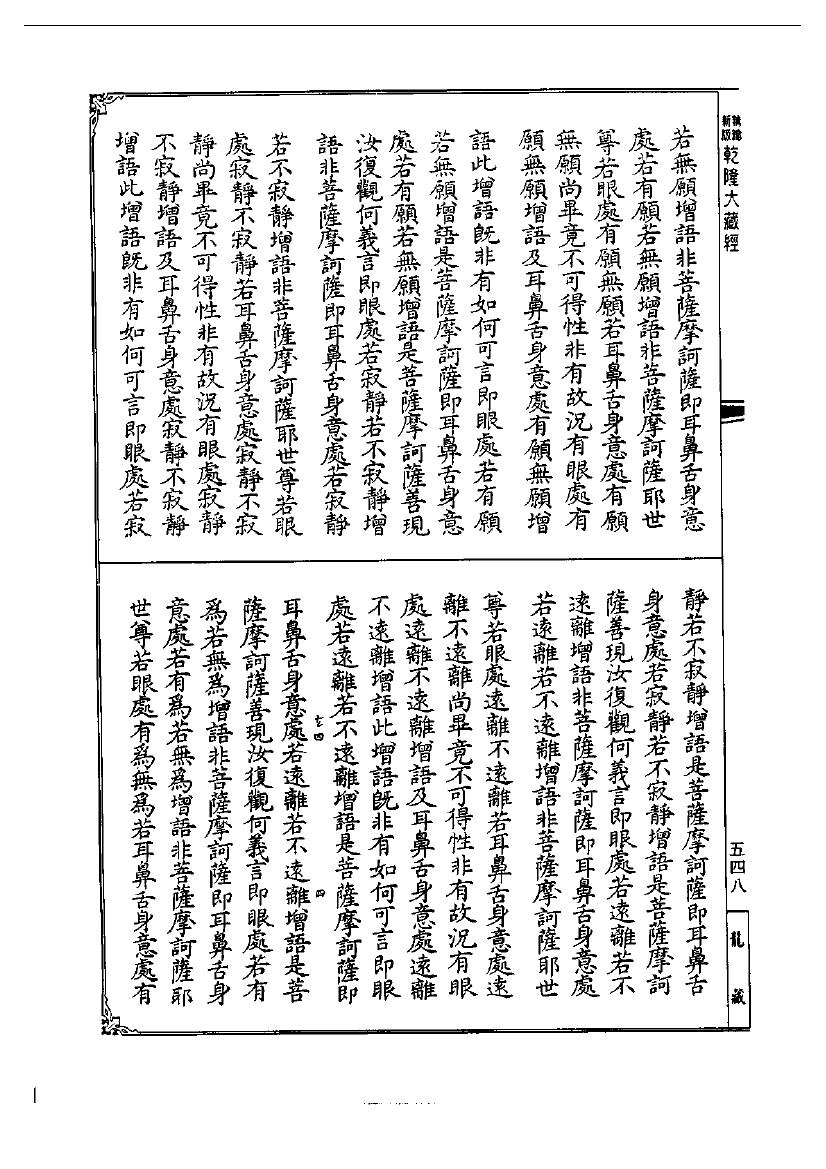 新編
新版
乾隆大藏經
若無願增語非菩薩摩訶薩即耳鼻舌身意
處若有願若無願增語非菩薩摩訶薩耶世
尊若眼處有願無願若耳鼻舌身意處有願
無願尚畢竟不可得性非有故況有眼處有
願無願增語及耳鼻舌身意處有願無願增
語此增語既非有如何可言即眼處若有願
若無願增語是菩薩摩訶薩即耳鼻舌身意
處若有願若無願增語是菩薩摩訶薩善現
汝復觀何義言即眼處若寂靜若不寂靜增
語非菩薩摩訶薩即耳鼻舌身意處若寂靜
若不寂靜增語非菩薩摩訶薩耶世尊若眼
處寂靜不寂靜若耳鼻舌身意處寂靜不寂
靜尚畢竟不可得性非有故況有眼處寂靜
不寂靜增語及耳鼻舌身意處寂靜不寂靜
增語此增語既非有如何可言即眼處若寂
靜若不寂靜增語是菩薩摩訶薩即耳鼻舌
身意處若寂靜若不寂靜增語是菩薩摩訶
薩善現汝復觀何義言即眼處若遠離若不
遠離增語非菩薩摩訶薩即耳鼻舌身意處
若遠離若不遠離增語非菩薩摩訶薩耶世
尊若眼處遠離不遠離若耳鼻舌身意處遠
離不遠離尚畢竟不可得性非有故況有眼
處遠離不遠離增語及耳鼻舌身意處遠離
不遠離增語此增語既非有如何可言即眼
處若遠離若不遠離增語是菩薩摩訶薩即
耳鼻舌身意處若遠離若不遠離增語是菩
薩摩訶薩善現汝復觀何義言即眼處若有
爲若無爲增語非菩薩摩訶薩即耳鼻舌身
意處若有爲若無爲增語非菩薩摩訶薩耶
世尊若眼處有爲無爲若耳鼻舌身意處有
五四八
龍藏